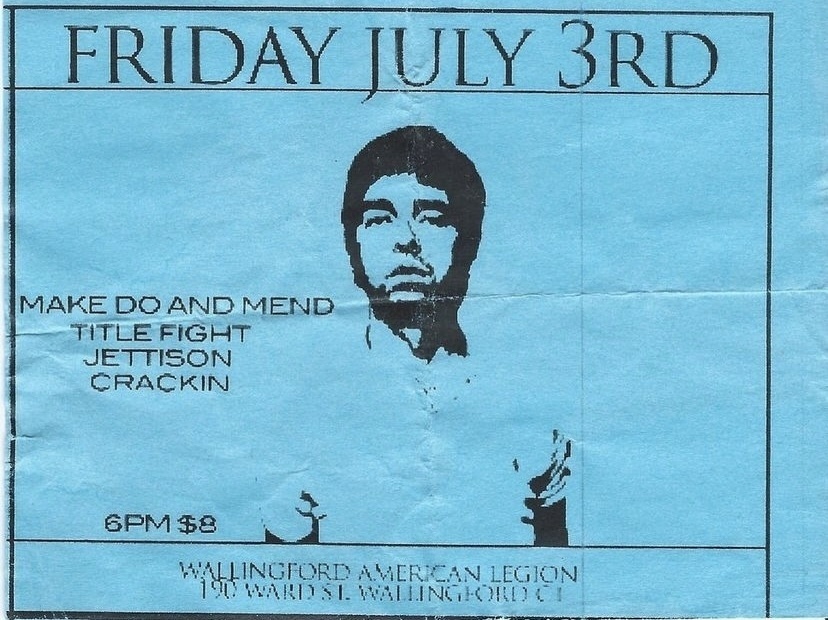 FRIDAY JULY 3RD
MAKE DO AND MEND
TITLE FIGHT
JETTISON
CRACKIN
6PM $8
WALLINGFORD AMERICAN LEGION
190 WARD ST. WALLINGFORD CT